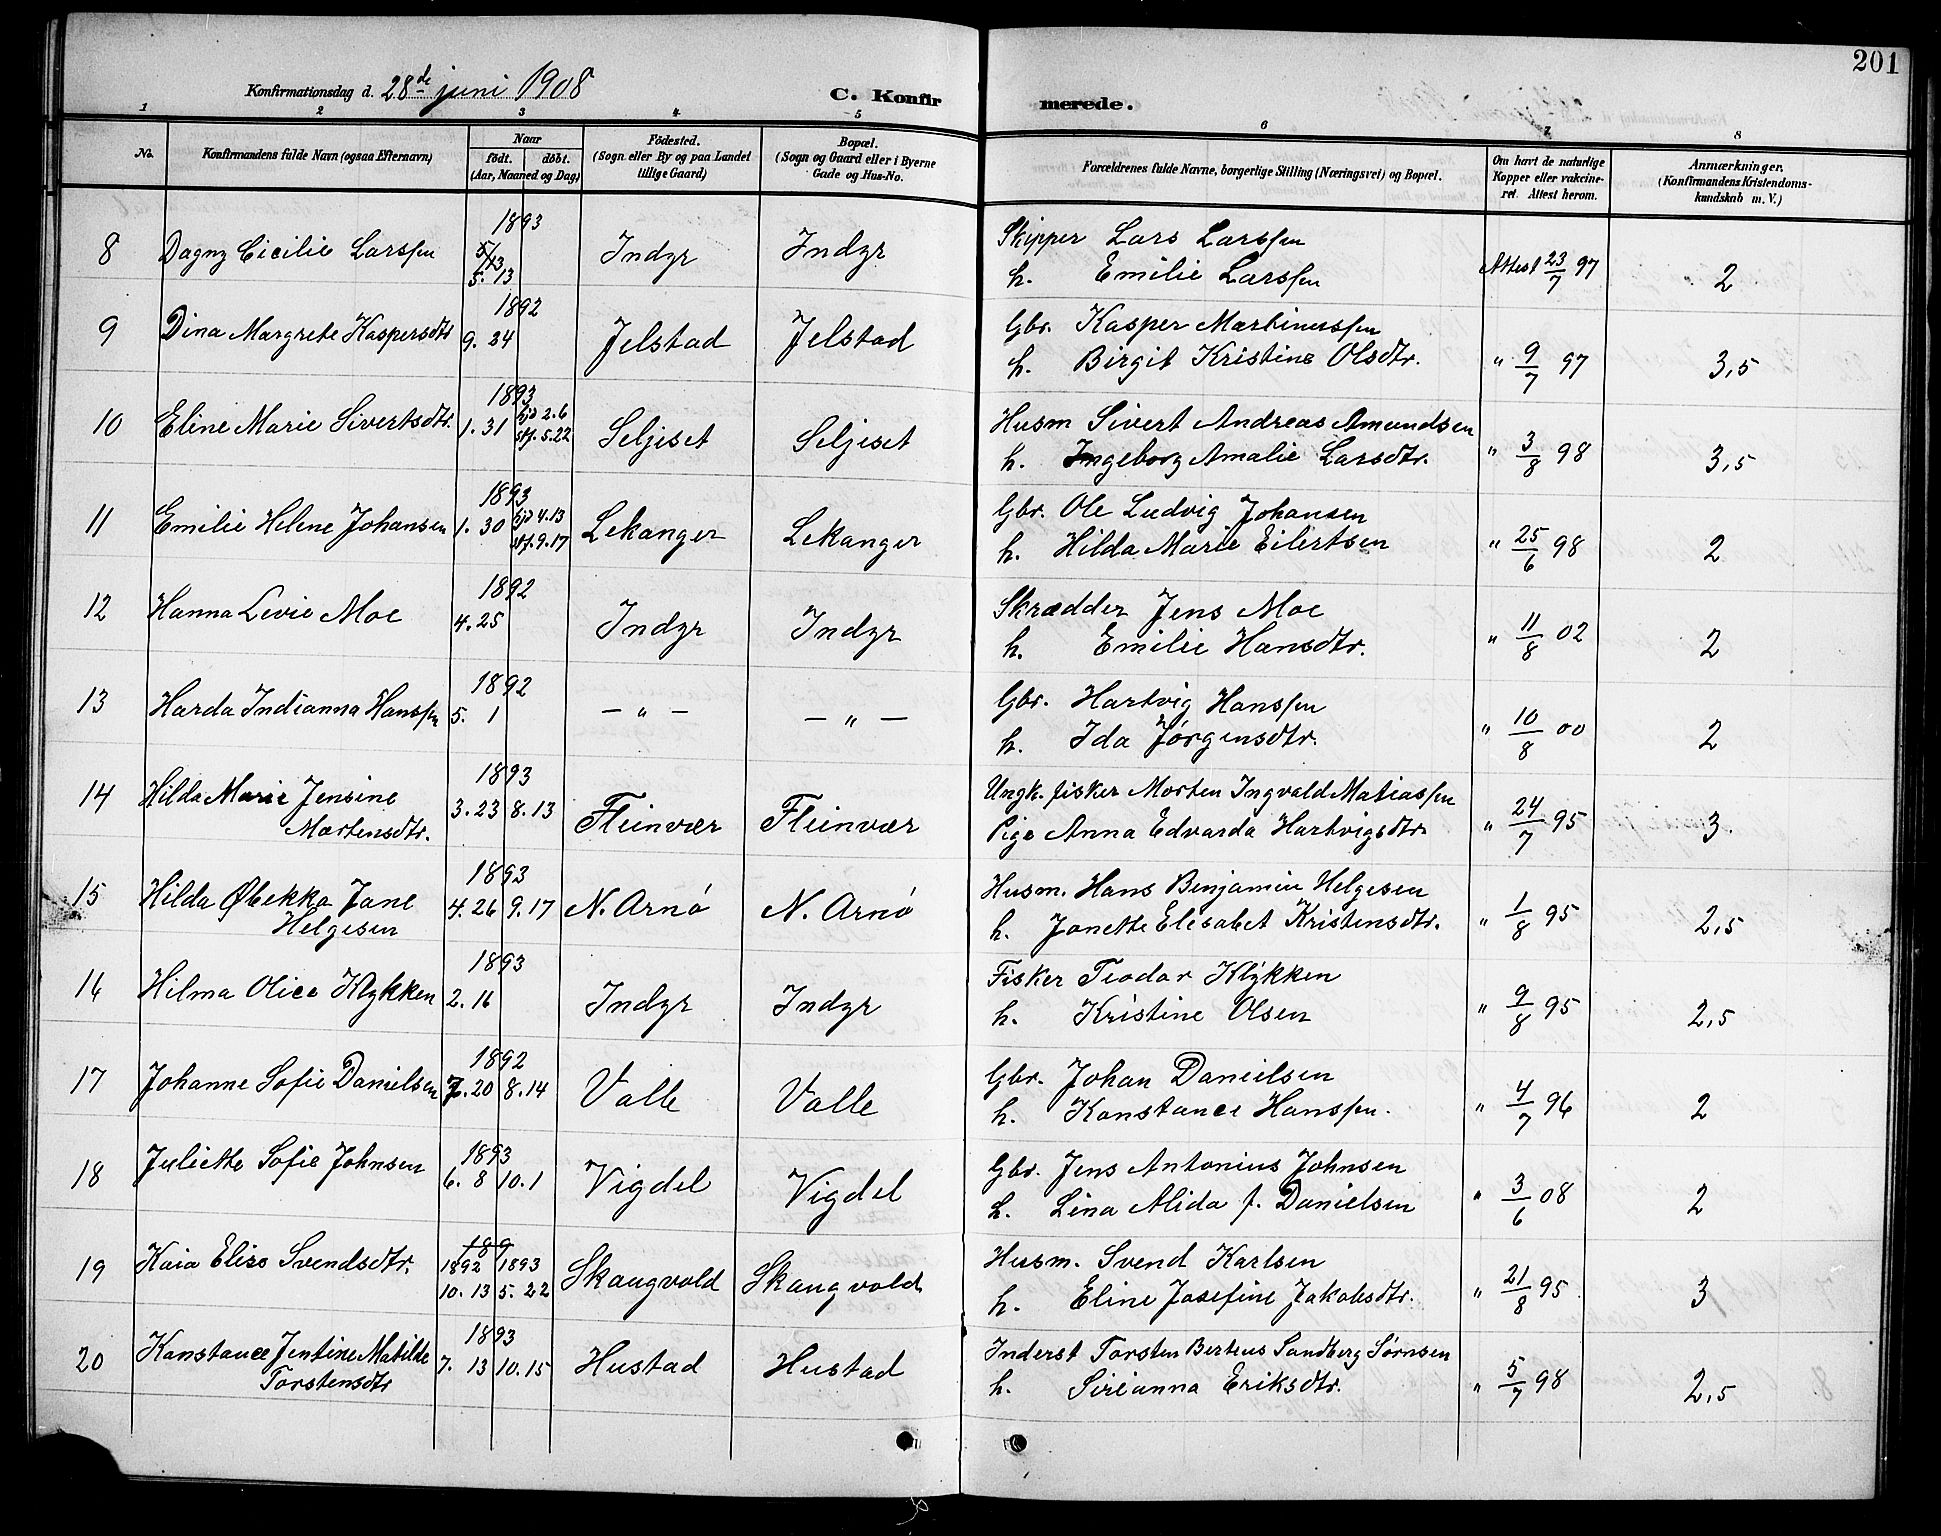 201
Konfirmationsdag d. 28de juni 1908
C. Konfirmerede.
1 2 3 4 5 6 7 8
No. Konfirmandens fulde Navn (ogsaa Efternavn) Naar födt. döbt. (Aar, Maaned og Dag) Födested. (Sogn eller By og paa Landet tillige Gaard) Bopæl. (Sogn og Gaard eller i Byerne Gade og Hus-No. Forældrenes fulde Navne, borgerlige Stilling (Næringsvei) og Bopæl. Om havt de naturlige Kopper eller vakcineret. Attest herom. Anmærkninger. (Konfirmandens Kristendomskundskab m. V.)
8 Dagny Cicilie Larssen 1893 5/13 5. 13 Indyr Indyr Skipper Lars Larssen Attest 23/7 97 2
h. Emilie Larssen
9 Dina Margrete Kaspersdtr 1892 9. 24 Jelstad Jelstad Gbr. Kasper Martinussen " 9/7 97 3,5
h. Birgit Kristine Olsdtr.
10 Eline Marie Sivertsdtr. 1893 1. 31 hjd 2.6 stf. 5.22 Seljeset Seljeset Husm Sivert Andreas Amundsen " 3/8 98 3,5
h. Ingeborg Amalie Larsdtr.
11 Emilie Helene Johansen 1893 1. 30 hjd 4.13 stf. 9.17 Lekanger Lekanger Gbr. Ole Ludvig Johansen " 25/6 98 2
h. Hilda Marie Eilertsen
12 Hanna Levie Moe 1892 4. 25 Indyr Indyr Skrædder Jens Moe " 11/8 02 2
h. Emilie Hansdtr.
13 Harda Indianna Hanssen 1892 5. 1 — " — — " — Gbr. Hartvig Hanssen " 10/8 00 2
h. Ida Jørgensdtr.
14 Hilda Marie Jensine Mortensdtr. 1893 3. 23 8. 13 Fleinvær Fleinvær Ungk. fisker Morten Ingvald Matiassen " 24/7 95 3
Pige Anna Edvarda Hartvigsdtr
15 Hilda Øbekka Jane Helgesen 1893 4. 26 9. 17 N. Arnö N. Arnö Husm. Hans Benjamin Helgesen " 1/8 95 2,5
h. Janette Elesabet Kristensdtr.
16 Hilma Olice Klykken 1893 2. 16 Indyr Indyr Fisker Teodor Klykken " 9/8 95 2,5
h. Kristine Olsen
17 Johanne Sofie Danielsen 1892 7. 20 8. 14 Valle Valle Gbr. Johan Danielsen " 4/7 96 2
h. Konstance Hanssen.
18 Juliette Sofie Johnsen 1893 6. 8 10. 1 Vigdel Vigdel Gbr. Jens Antonius Johnsen " 3/6 08 2
h. Lina Alida f. Danielsen
19 Kaia Elise Svendsdtr. 189 1892 10. 13 1893 5. 22 Skaugvold Skaugvold Husm. Svend Karlsen " 21/8 95 3
h. Eline Josefine Jakobsdtr.
20 Konstance Jentine Matilde Torstensdtr 1893 7. 13 10. 15 Hustad Hustad Inderst Torsten Berteus Sandberg Sørnsen " 5/7 98 2,5
h. Sirianna Eriksdtr.